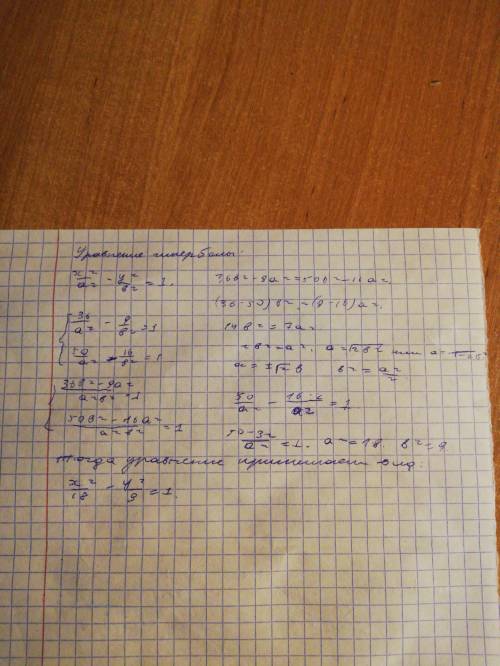 Уравнение гиперболы:
x²/a² - y²/b² = 1.
36/a² - 9/b² = 1
50/a² - 16/b² = 1.
36b² - 9a²/a²b² = 1
50b² - 16a²/a²b² = 1
36b² - 9a² = 50b² - 16a²
(36-50)b² = (9-16)a².
14b² = 7a²
2b² = a². a = √2b² или
a = ±√2 b b² = a²/2
50/a² - 16·2/a² = 1
50-32/a² = 1. a² = 18. b² = 9
Тогда уравнение принимает вид:
x²/18 - y²/9 = 1.